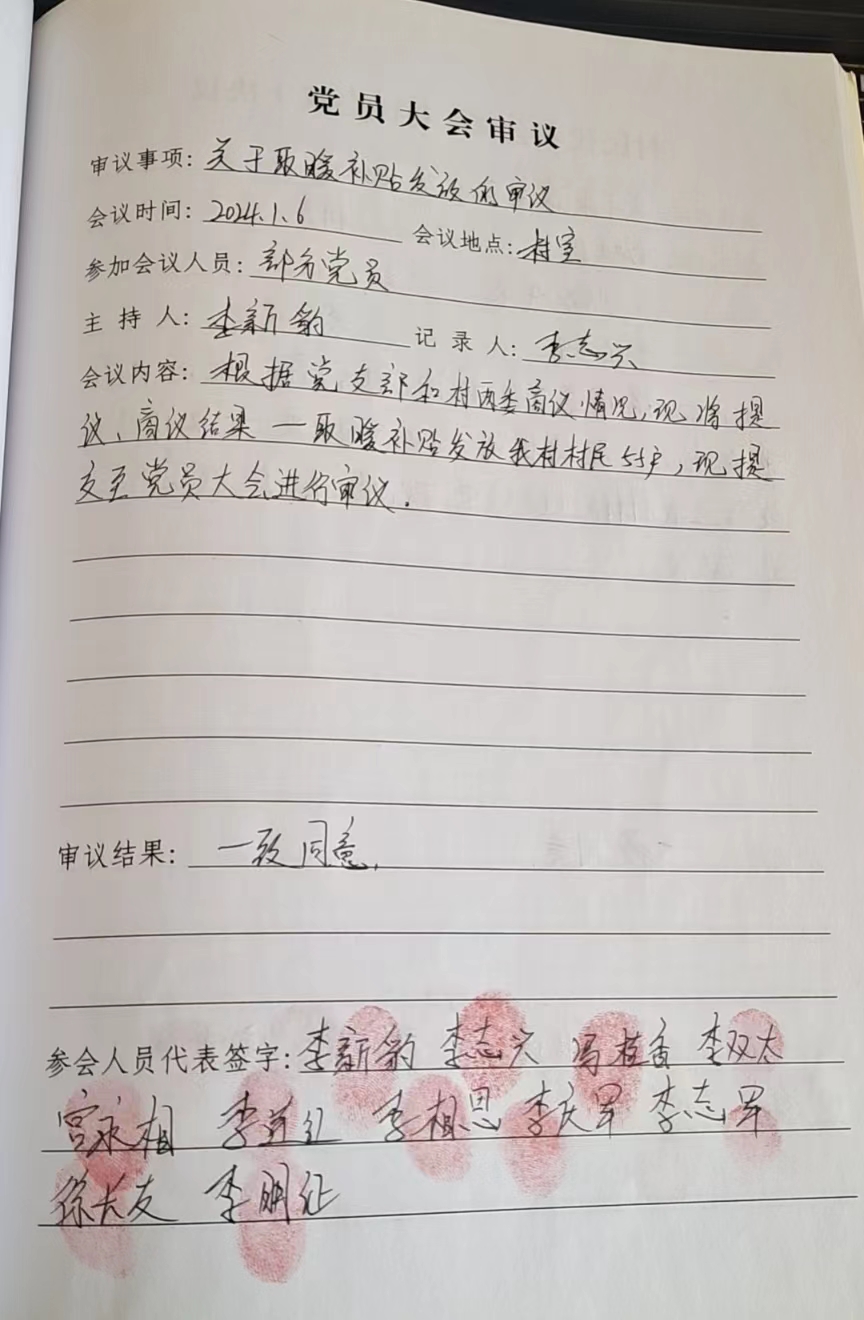 党员大会审议
审议事项：关于取暖补贴发放的审议
会议时间：2024.1.6 会议地点：村室
参加会议人员：部分党员
主持人：李新豹 记录人：李志兴
会议内容：根据党支部和村两委商议情况，现将提
议、商议结果一取暖补贴发放我村村民55户，现提
交至党员大会进行审议.
审议结果：一致同意.
参会人员代表签字：李新豹 李志兴 冯桂香 李双太
宫永相 李相思 李庆军 李志军
孙长友